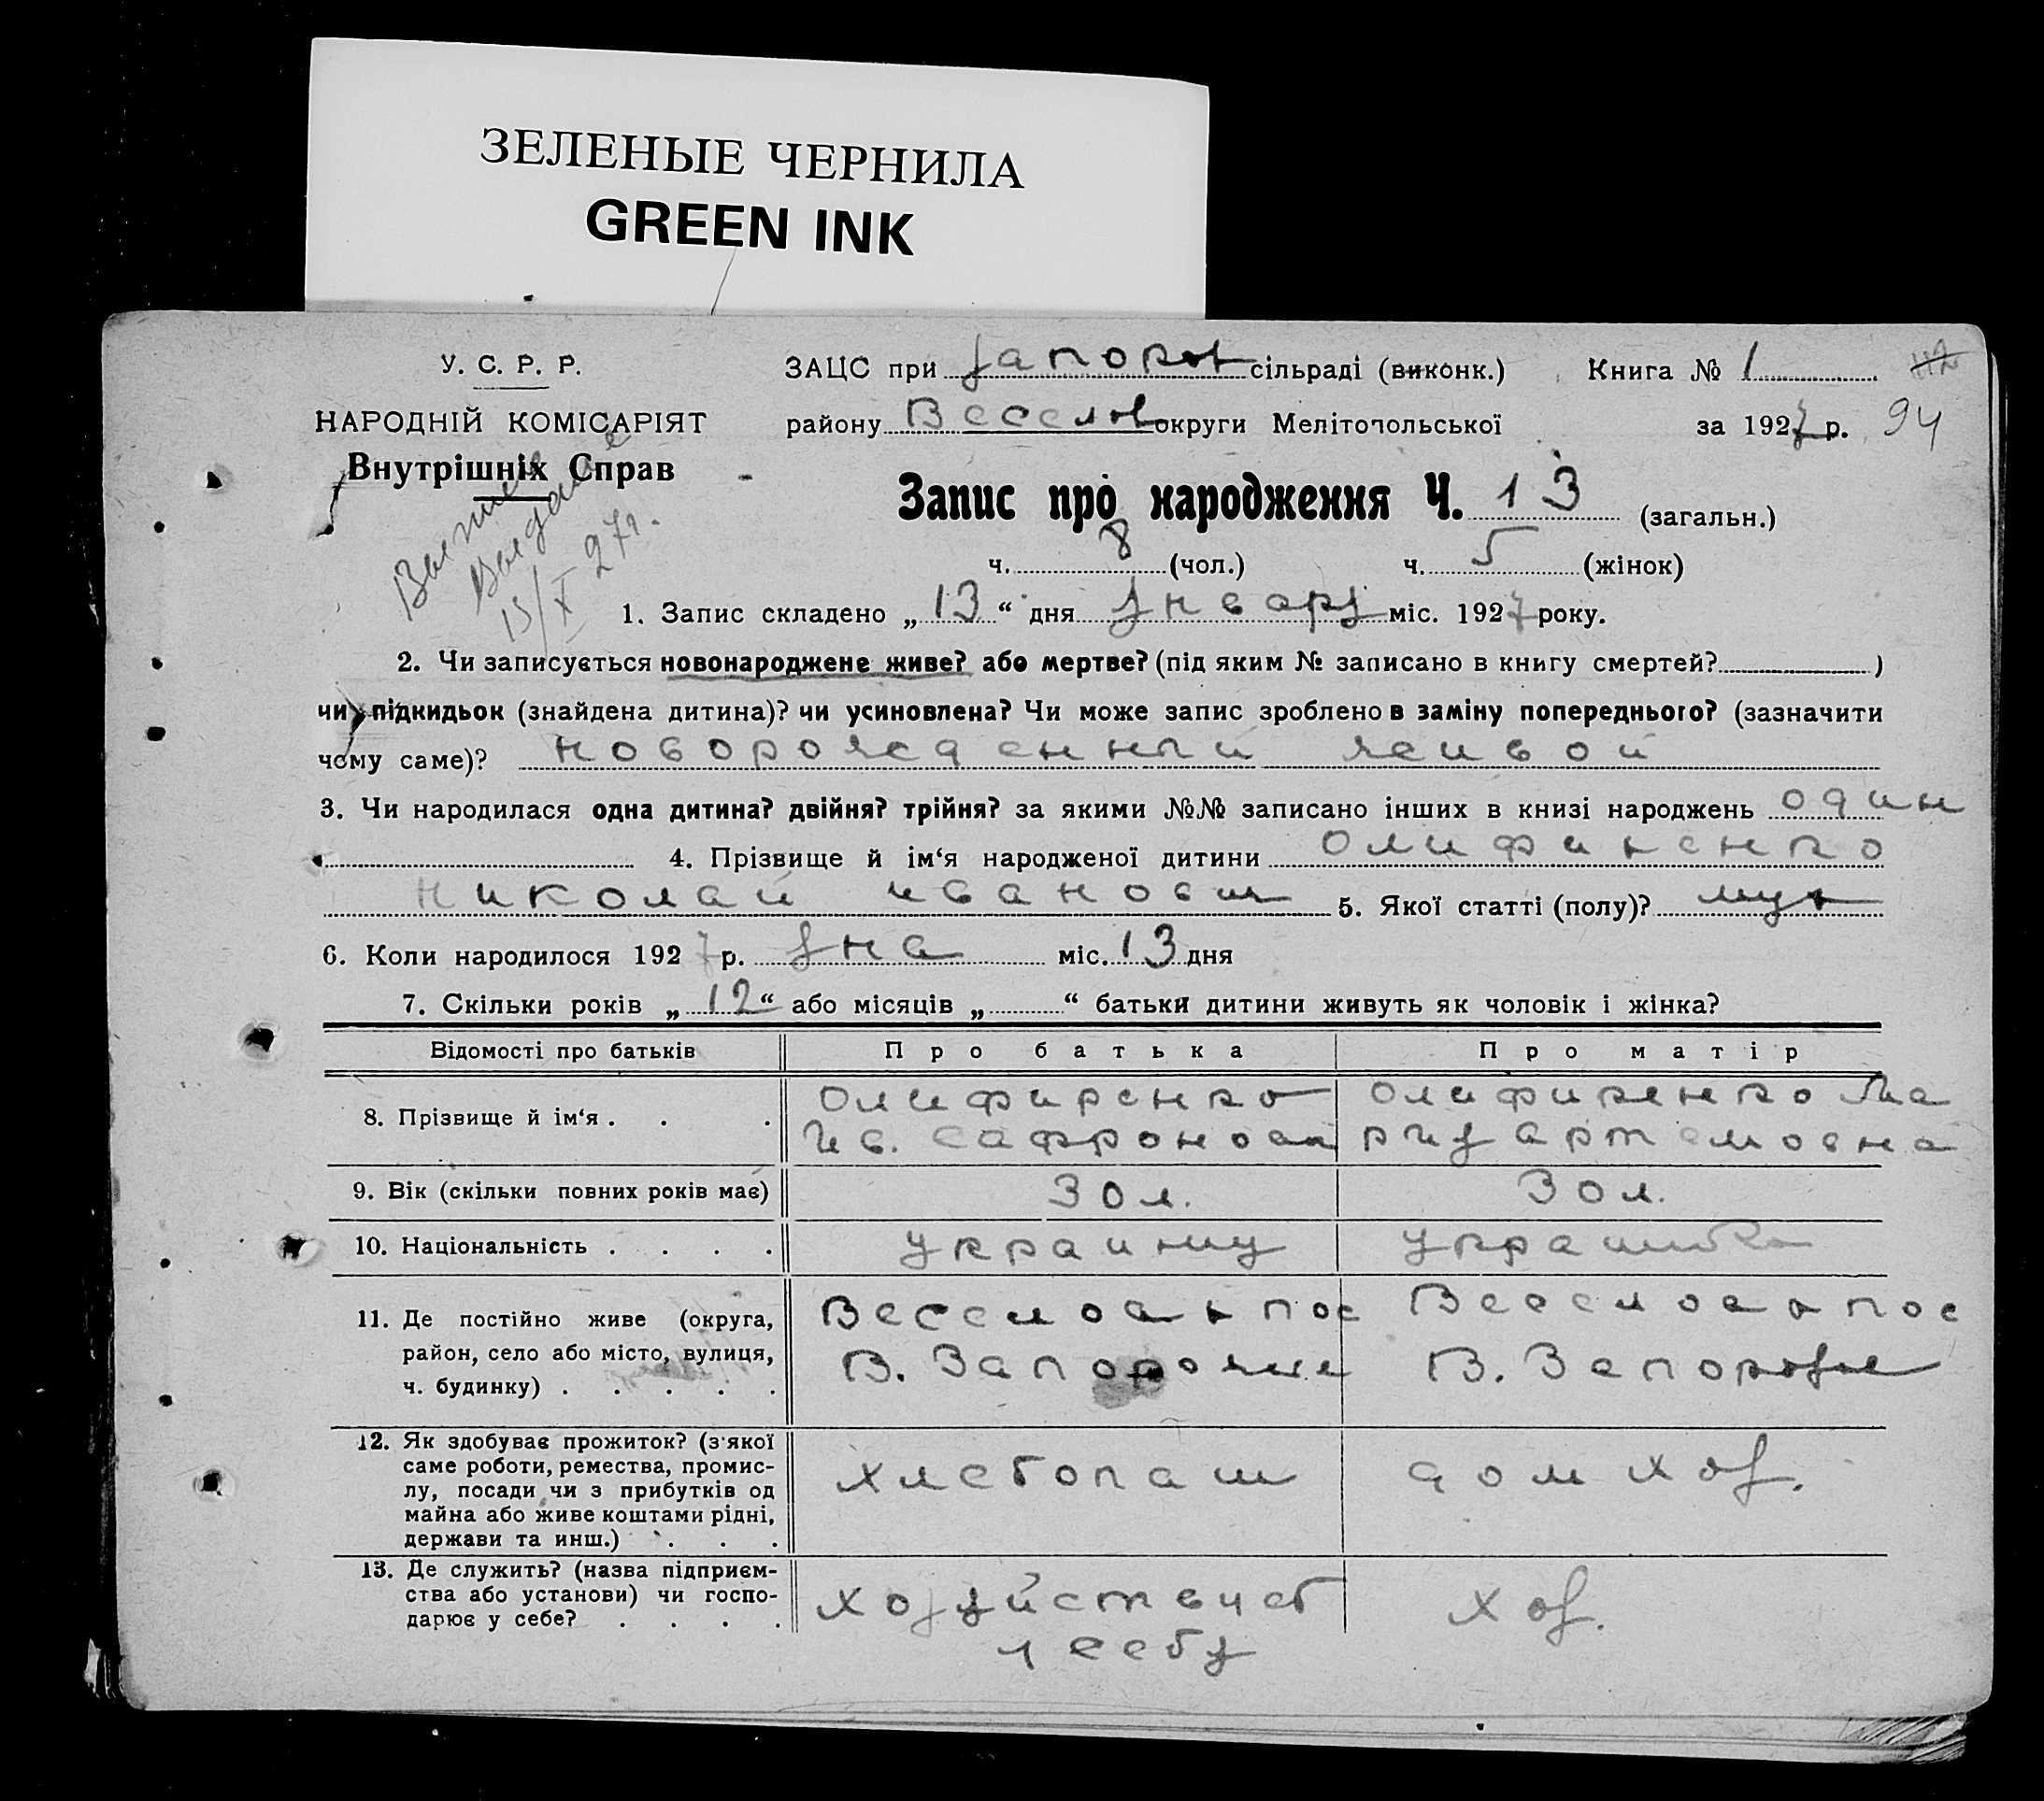 ЗЕЛЕНЫЕ ЧЕРНИЛА
GREEN INK
У. С. Р. Р.
НАРОДНІЙ КОМІСАРІЯТ
Внутрішніх Справ
15/X 27г.
ЗАЦС при Запорож сільраді (виконк.) Книга № 1
району Веселов округи Мелітопольської за 1927 р. 94
Запис про народження Ч. 13 (загальн.)
ч. 8 (чол.) ч. 5 (жінок)
1. Запис складено „13“ дня января міс. 1927 року.
2. Чи записується новонароджене живе? або мертве? (під яким № записано в книгу смертей? )
чи підкидьок (знайдена дитина)? чи усиновлена? Чи може запис зроблено в заміну попереднього? (зазначити
чому саме)? новорожденный живой
3. Чи народилася одна дитина? двійня? трійня? за якими №№ записано інших в книзі народжень один
4. Прізвище й ім‘я народженої дитини Олифиренко
Николай Иванович 5. Якої статті (полу)? муж
6. Коли народилося 1927 р. Яна міс. 13 дня
7. Скільки років „12“ або місяців „ “ батьки дитини живуть як чоловік і жінка?
Відомості про батьків Про батька Про матір
8. Прізвище й ім‘я . . . Олифиренко Олифиренко Ма
Ив. Сафронов рия Артемовна
9. Вік (скільки повних років має) 30 л. 30 л.
10. Національність . . . . украинец украинка
11. Де постійно живе (округа, Веселовск пос Веселовск пос
район, село або місто, вулиця, В. Запорожье В. Запорожье
ч. будинку) . . . . .
12. Як здобуває прожиток? (з‘якої
саме роботи, ремества, промис- хлебопаш дом хоз.
лу, посади чи з прибутків од
майна або живе коштами рідні,
держави та инш.) . . .
13. Де служить? (назва підприєм-
ства або установи) чи госпо- хозяйствует хоз.
дарює у себе? . . . .
у себя